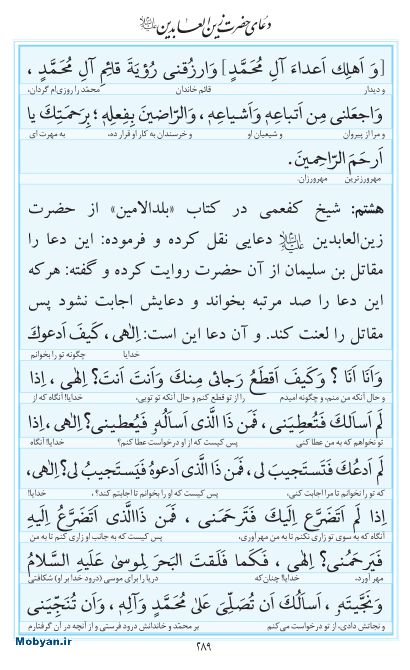 دعای حضرت زین العابدین علیه‌السلام
[وَ اَهلِك اَعداءَ آلِ مُحَمَّدٍ] وَارزُقنى رُؤيَةَ قائِمِ آلِ مُحَمَّدٍ ،
و دیدار قائم خاندان محمّد را روزی‌ام گردان،
وَاجعَلنى مِن اَتباعِهِ وَاَشياعِهِ ، وَالرّاضينَ بِفِعلِهِ ؛ بِرَحمَتِكَ يا
و مرا از پیروان و شیعیان او و خرسندان به کار او قرار ده، به مهرت ای
اَرحَمَ الرّاحِمينَ.
مهرورزترین مهرورزان.
هشتم: شیخ کفعمی در کتاب «بلدالامین» از حضرت
زین‌العابدین علیه‌السلام دعایی نقل کرده و فرموده: این دعا را
مقاتل بن سلیمان از آن حضرت روایت کرده و گفته: هرکه
این دعا را صد مرتبه بخواند و دعایش اجابت نشود پس
مقاتل را لعنت کند. و آن دعا این است: اِلٰهى، كَيفَ اَدعوكَ
خدایا چگونه تو را بخوانم
وَاَنَا اَنَا ؟ وَكَيفَ اَقطَعُ رَجائى مِنكَ وَاَنتَ اَنتَ؟ اِلٰهى ، اِذا
و حال آنکه من منم، و چگونه امیدم را از تو قطع کنم و حال آنکه تو تویی، خدایا! آنگاه که از
لَم اَسأَلكَ فَتُعطِيَنى ، فَمَن ذَا الَّذى اَسأَلُهُ فَيُعطينى؟ اِلٰهى، اِذا
تو نخواهم که به من عطا کنی پس کیست که از او درخواست عطا کنم؟ خدایا! آنگاه
لَم اَدعُكَ فَتَستَجيبَ لى، فَمَن ذَا الَّذى اَدعوهُ فَيَستَجيبُ لى؟ اِلٰهى،
که تو را نخوانم تا مرا اجابت کنی، پس کیست که او را بخوانم تا اجابتم کند؟، خدایا!
اِذا لَم اَتَضَرَّع اِلَيكَ فَتَرحَمَنى ، فَمَن ذَاالَّذى اَتَضَرَّعُ اِلَيهِ
آنگاه که به سوی تو زاری نکنم تا به من مهرآوری، پس کیست که به جانب او زاری کنم تا به من
فَيَرحَمُنى؟ اِلٰهى ، فَكَما فَلَقتَ البَحرَ لِموسىٰ عَلَيهِ السَّلامُ
مهر آورد، خدایا! چنان‌که دریا را برای موسی (درود خدا بر او) شکافتی
وَنَجَّيتَهُ ، اَسأَلُكَ اَن تُصَلِّىَ عَلىٰ مُحَمَّدٍ وَآلِهِ ، وَاَن تُنَجِّيَنى
و نجاتش دادی، از تو درخواست می‌کنم بر محمّد و خاندانش درود فرستی و از آنچه در آن گرفتارم
۲۸۹
Mobyan.ir